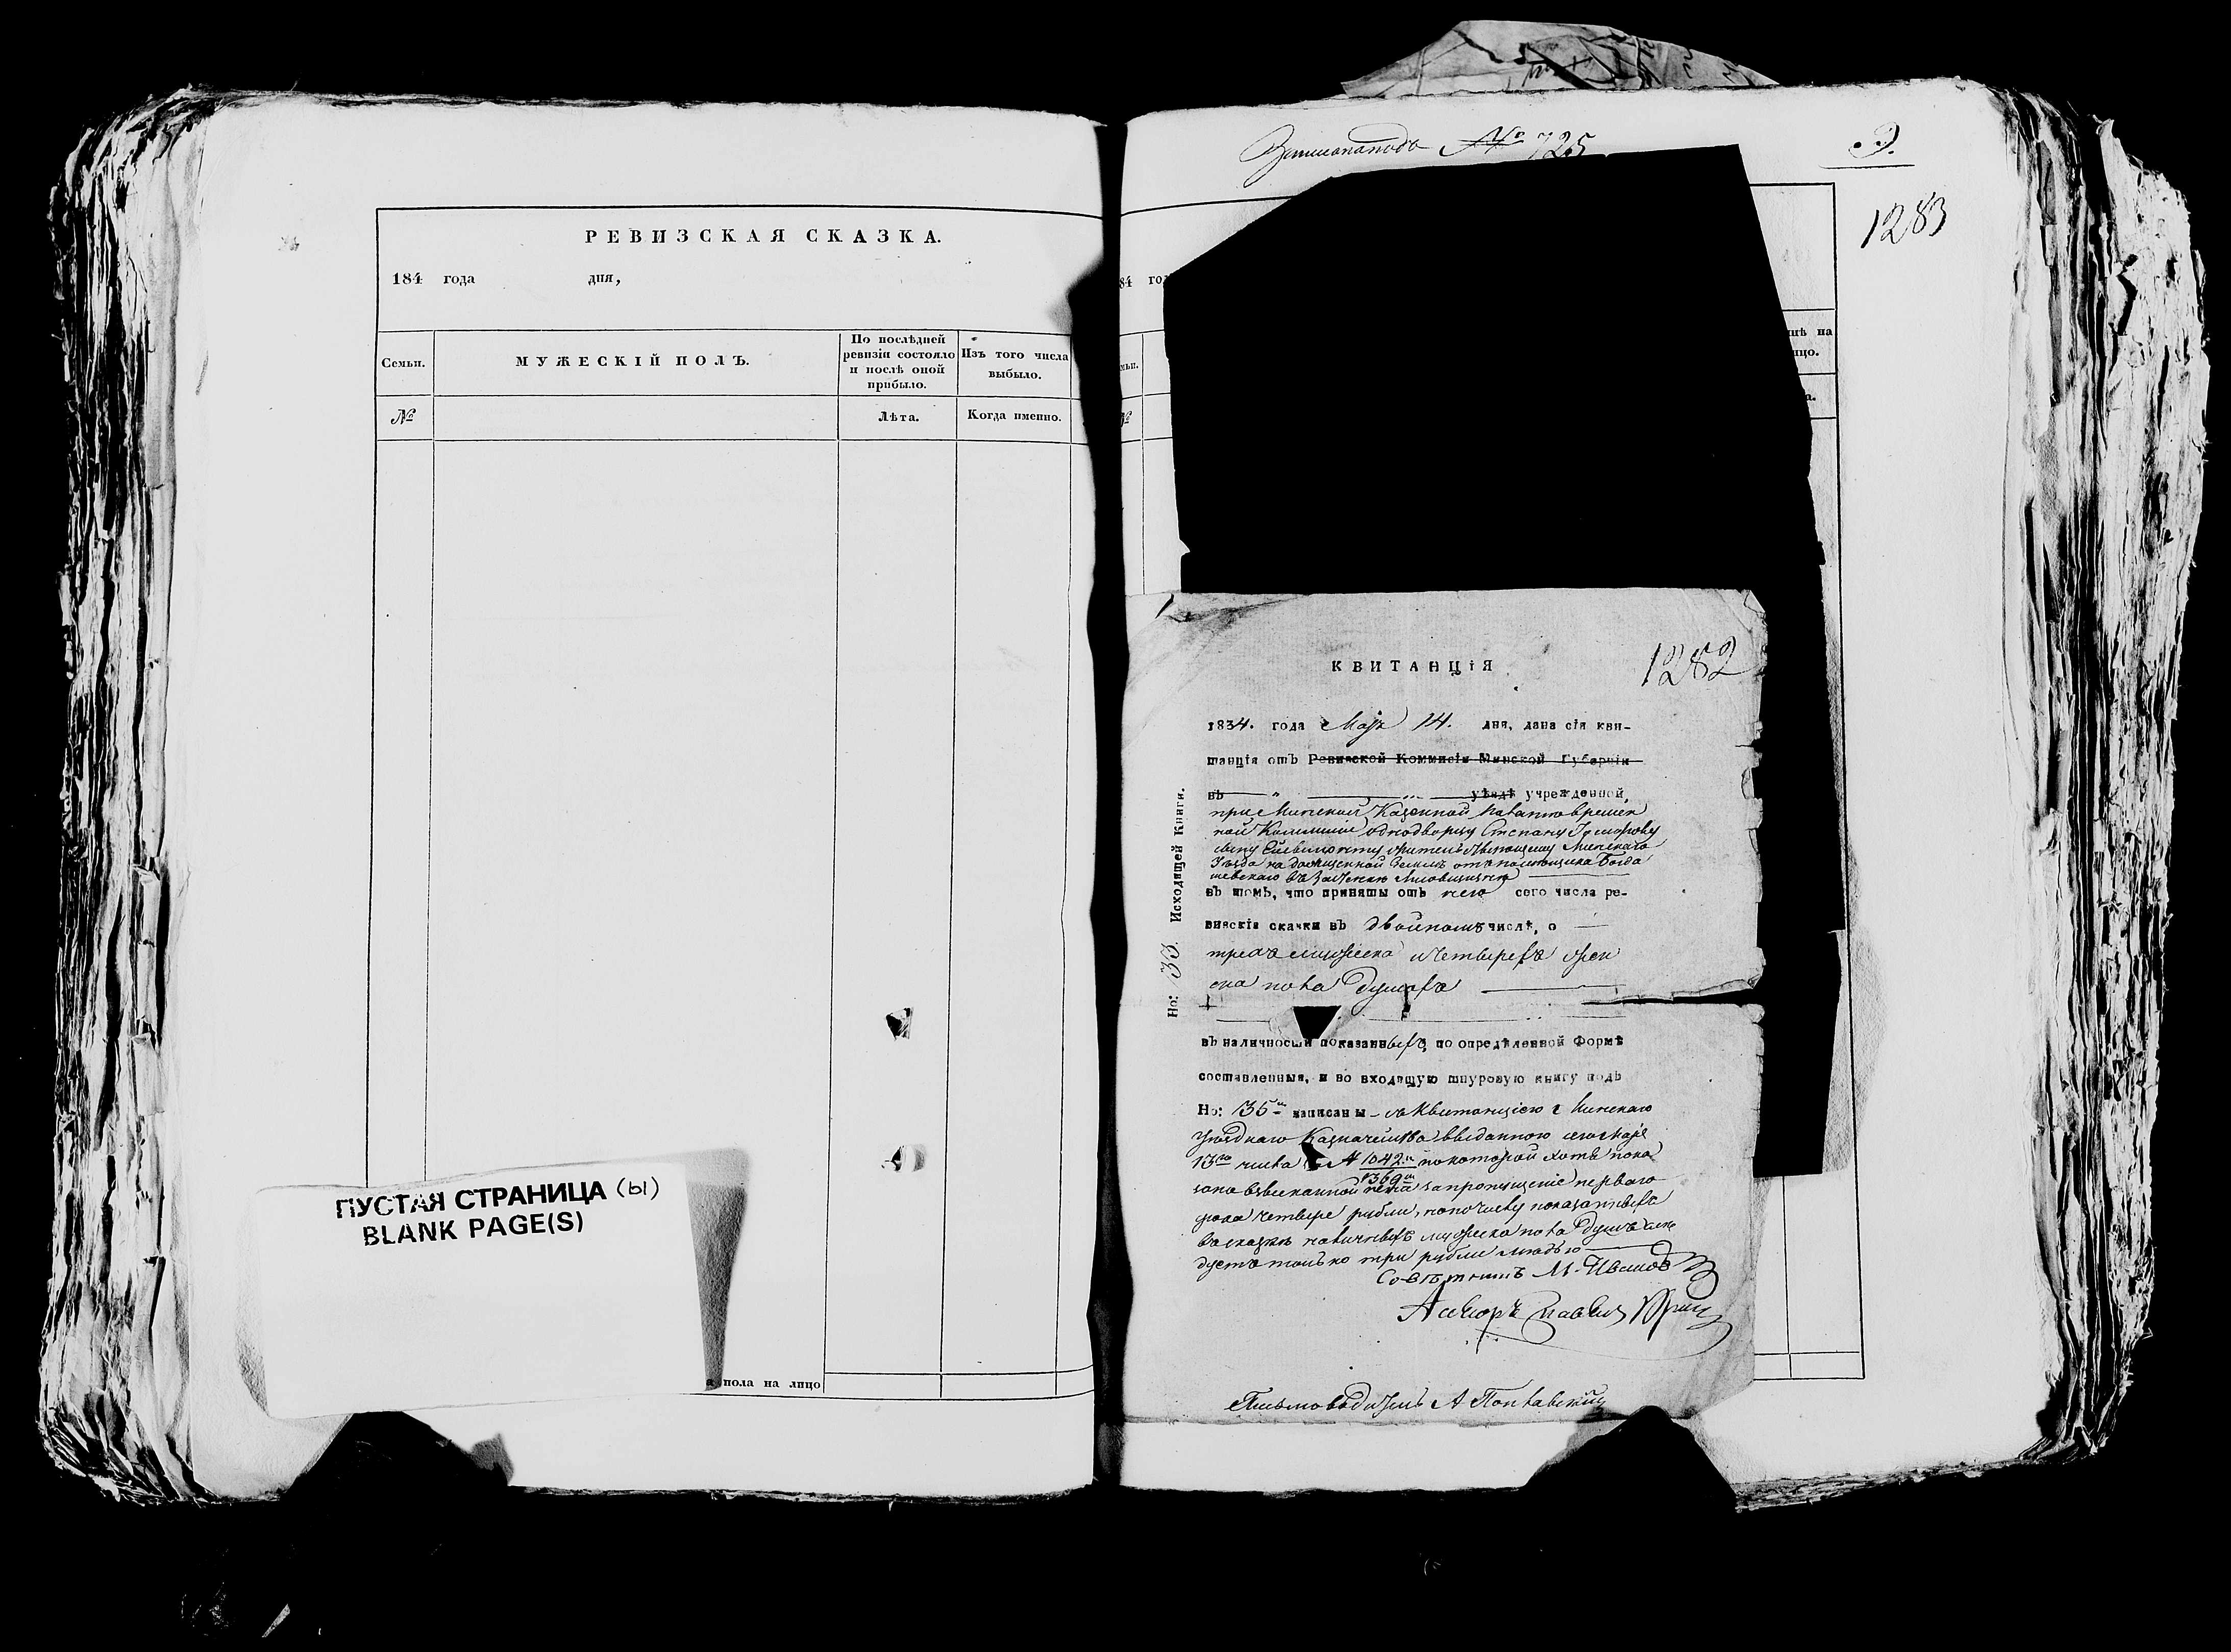 РЕВИЗСКАЯ СКАЗКА.
184 года дня,
Семьи.
МУЖЕСКІЙ ПОЛЪ.
По послѣдней
ревизіи состояло
и послѣ оной
прибыло.
Изъ того числа
выбыло.
№
Лѣта.
Когда именно.
ПУСТАЯ СТРАНИЦА (ы)
BLANK PAGE(S)
пола на лицо
№ 725
9.
1283
84 го
№
на
цо.
а.
КВИТАНЦІЯ
1282
1834. года Маія 14. дня, дана сія кви-
танція отъ Ревизской Коммисіи Минской Губерніи
въ уѣздѣ учрежденной
при Минской Казенной Палатѣ времен
ной Коммисіи однодворцу Степану
сыну жительствующему Минскаго
Уѣзда на земле отъ помещика Богда
шевскаго
въ томъ, что приняты отъ него сего числа ре-
визскія скачки въ двойномъ числѣ, о
трехъ мужеска и четырехъ жен
ска пола душахъ
въ наличности показанныхъ, по опредѣленной Формѣ
составленныя, и во входящую шнуровую книгу подъ
Но: 135 м записаны съ квитанціею Минскаго
Уезднаго Казначейства выданною сего Маія
13го числа № 1042 м по которой хотя пока
1369 м
зано взысканной пени за пропущеніе перваго
срока четыре рубли, но по числу показанныхъ
въ сказкѣ наличныхъ мужеска пола душъ слѣ
дуетъ только три рубли
Советникъ М. Иванов
Асесоръ
Письмоводитель А
Но: 33. Исходящей Книги.